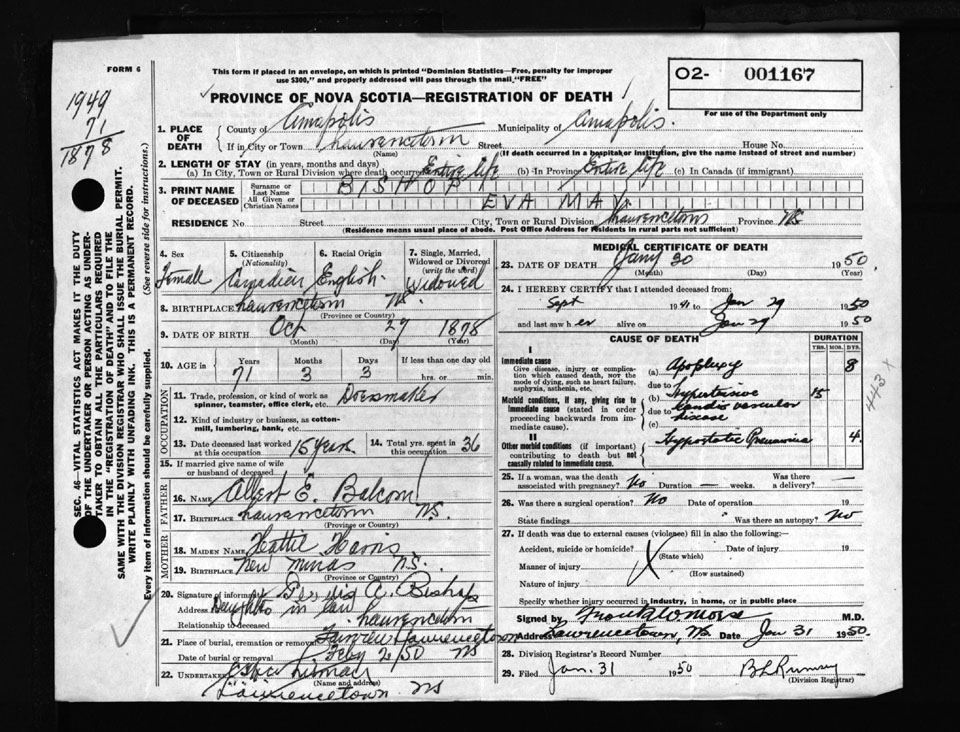 FORM 6
This form if placed in an envelope, on which is printed "Dominion Statistics—Free, penalty for improper
use $300," and properly addressed will pass through the mail "FREE"
O2- 001167
For use of the Department only
PROVINCE OF NOVA SCOTIA—REGISTRATION OF DEATH
1949
71
1878
SEC. 46—VITAL STATISTICS ACT MAKES IT THE DUTY
OF THE UNDERTAKER OR PERSON ACTING AS UNDER-
TAKER TO OBTAIN ALL THE PARTICULARS REQUIRED
IN THE "REGISTRATION OF DEATH" AND TO FILE THE
SAME WITH THE DIVISION REGISTRAR WHO SHALL ISSUE THE BURIAL PERMIT.
WRITE PLAINLY WITH UNFADING INK. THIS IS A PERMANENT RECORD.
Every item of information should be carefully supplied. (See reverse side for instructions.)
1. PLACE OF DEATH
County of Annapolis Municipality of Annapolis.
If in City or Town Lawrencetown Street House No.
(Name) (If death occurred in a hospital or institution, give the name instead of street and number)
2. LENGTH OF STAY (in years, months and days)
(a) In City, Town or Rural Division where death occurred Entire life (b) In Province Entire life (c) In Canada (if immigrant)
3. PRINT NAME OF DECEASED
Surname or Last Name BISHOP
All Given or Christian Names EVA MAY
RESIDENCE No Street City, Town or Rural Division Lawrencetown Province NS
(Residence means usual place of abode. Post Office Address for residents in rural parts not sufficient)
4. Sex Female
5. Citizenship (Nationality) Canadian
6. Racial Origin English
7. Single, Married, Widowed or Divorced (write the word) Widowed
8. BIRTHPLACE Lawrencetown NS.
(Province or Country)
9. DATE OF BIRTH Oct 27 1878
(Month) (Day) (Year)
10. AGE in Years Months Days If less than one day old
71 3 3 hrs. or min.
OCCUPATION
11. Trade, profession, or kind of work as
spinner, teamster, office clerk, etc. Dressmaker
12. Kind of industry or business, as cotton-
mill, lumbering, bank, etc.
13. Date deceased last worked at this occupation 15 years
14. Total yrs. spent in this occupation 36
15. If married give name of wife
or husband of deceased
FATHER
16. NAME Albert E. Balcom
17. BIRTHPLACE Lawrencetown NS.
(Province or Country)
MOTHER
18. MAIDEN NAME Hattie Harris
19. BIRTHPLACE New Minas N.S.
(Province or Country)
20. Signature of informant Bishop
Address Lawrencetown
Relationship to deceased Daughter in law
21. Place of burial, cremation or removal Lawrencetown
Date of burial or removal Feby 2/50 NS
22. UNDERTAKER
(Name and address)
Lawrencetown NS
MEDICAL CERTIFICATE OF DEATH
23. DATE OF DEATH Jany 30 1950.
(Month) (Day) (Year)
24. I HEREBY CERTIFY that I attended deceased from:
Sept 1941 to Jan 29 1950
and last saw her alive on Jan 29 1950
CAUSE OF DEATH DURATION
YRS. MOS. DYS.
I
Immediate cause
Give disease, injury or complica-
tion which caused death, NOT the
mode of dying, such as heart failure,
asphyxia, asthenia, etc.
(a) Apoplexy 8
due to
Morbid conditions, if any, giving rise to
immediate cause (stated in order
proceeding backwards from im-
mediate cause).
(b) Hypertensive 15
due to Cardio vascular
(c) disease
II
Other morbid conditions (if important)
contributing to death but not
causally related to immediate cause.
Hypostatic Pneumonia 4
443 X
25. If a woman, was the death
associated with pregnancy? No Duration — weeks. Was there a delivery? —
26. Was there a surgical operation? No Date of operation 19
State findings Was there an autopsy? No
27. If death was due to external causes (violence) fill in also the following:
Accident, suicide or homicide? Date of injury 19
(State which)
Manner of injury
(How sustained)
Nature of injury
Specify whether injury occurred in industry, in home, or in public place
Signed by Frank W Morse M.D.
Address Lawrencetown, NS. Date Jan 31 1950.
28. Division Registrar's Record Number
29. Filed Jan. 31 1950 B L Rumsey
(Division Registrar)